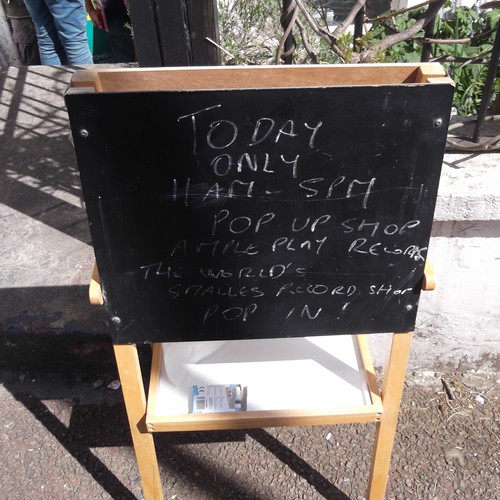 TODAY
ONLY
11AM - 5PM
POP UP SHOP
AMPLE PLAY RECORDS
THE WORLD'S
SMALLES RECORD SHOP
POP IN!